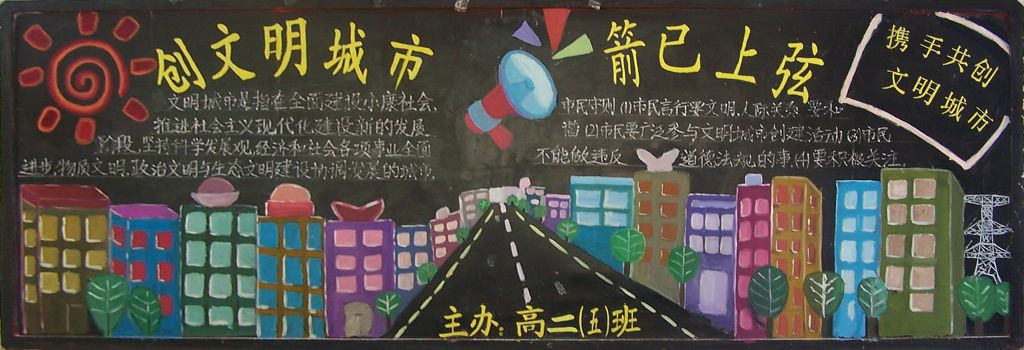 创文明城市
箭已上弦
携手共创
文明城市
文明城市是指在全面建设小康社会、
推进社会主义现代化建设新的发展
阶段,坚持科学发展观,经济和社会各项事业全面
进步,物质文明,政治文明与生态文明建设协调发展的城市.
市民守则 (1)市民言行要文明,人际关系 要和
谐 (2)市民要广泛参与文明城市创建活动 (3)市民
不能做违反 道德法规的事 (4)要积极关注.
主办:高二(五)班